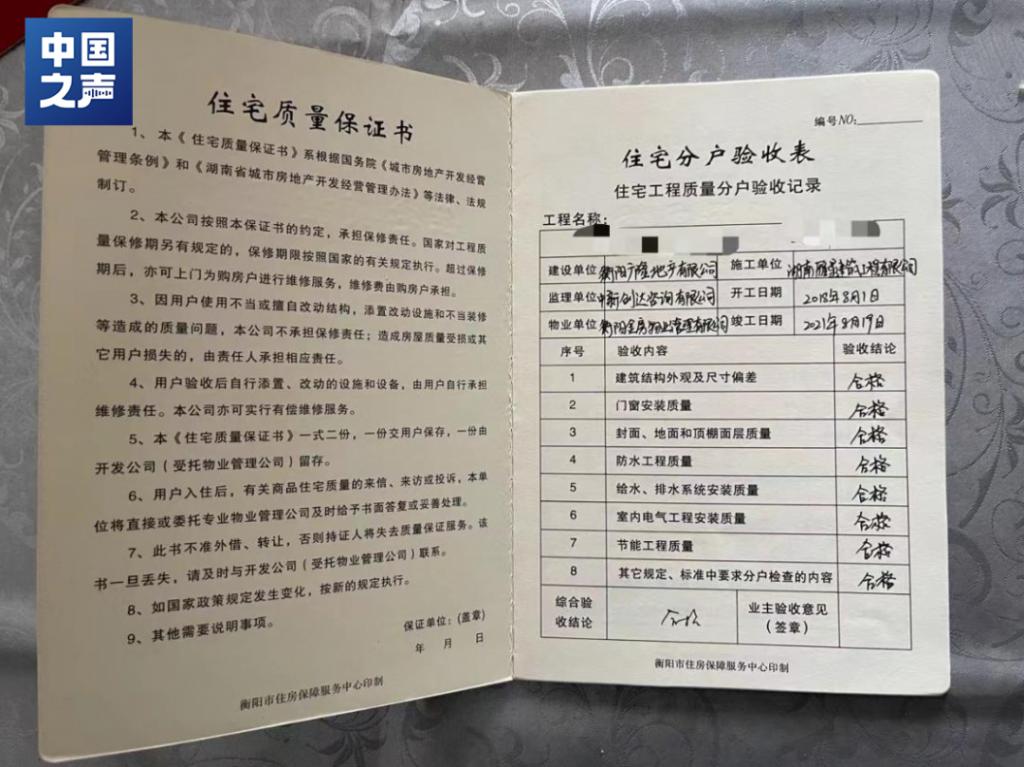 中国
之声
住宅质量保证书
1、本《住宅质量保证书》系根据国务院《城市房地产开发经营
管理条例》和《湖南省城市房地产开发经营管理办法》等法律、法规
制订。
2、本公司按照本保证书的约定，承担保修责任。国家对工程质
量保修期另有规定的，保修期限按照国家的有关规定执行。超过保修
期后，亦可上门为购房户进行维修服务，维修费由购房户承担。
3、因用户使用不当或擅自改动结构，添置改动设施和不当装修
等造成的质量问题，本公司不承担保修责任；造成房屋质量受损或其
它用户损失的，由责任人承担相应责任。
4、用户验收后自行添置、改动的设施和设备，由用户自行承担
维修责任。本公司亦可实行有偿维修服务。
5、本《住宅质量保证书》一式二份，一份交用户保存，一份由
开发公司（受托物业管理公司）留存。
6、用户入住后，有关商品住宅质量的来倍、来访或投诉，本单
位将直接或委托专业物业管理公司及时给予书面答复或妥善处理。
7、此书不准外借、转让，否则持证人将失去质量保证服务。该
书一旦丢失，请及时与开发公司（受托物业管理公司）联系。
8、如国家政策规定发生变化，按新的规定执行。
9、其他需要说明事项。
保证单位：（盖章）
年 月 日
衡阳市住房保障服务中心印制
编号NO:
住宅分户验收表
住宅工程质量分户验收记录
工程名称：
建设单位 衡阳广隆地产有限公司 施工单位 湖南雁 工程有限公司
监理单位 中新创达咨询有限公司 开工日期 2018年8月1日
物业单位 衡阳 物业管理有限公司 竣工日期 2021年8月19日
序号 验收内容 验收结论
1 建筑结构外观及尺寸偏差 合格
2 门窗安装质量 合格
3 封面、地面和顶棚面层质量 合格
4 防水工程质量 合格
5 给水、排水系统安装质量 合格
6 室内电气工程安装质量 合格
7 节能工程质量 合格
8 其它规定、标准中要求分户检查的内容 合格
综合验 业主验收意见
收结论 合格 （签章）
衡阳市住房保障服务中心印制